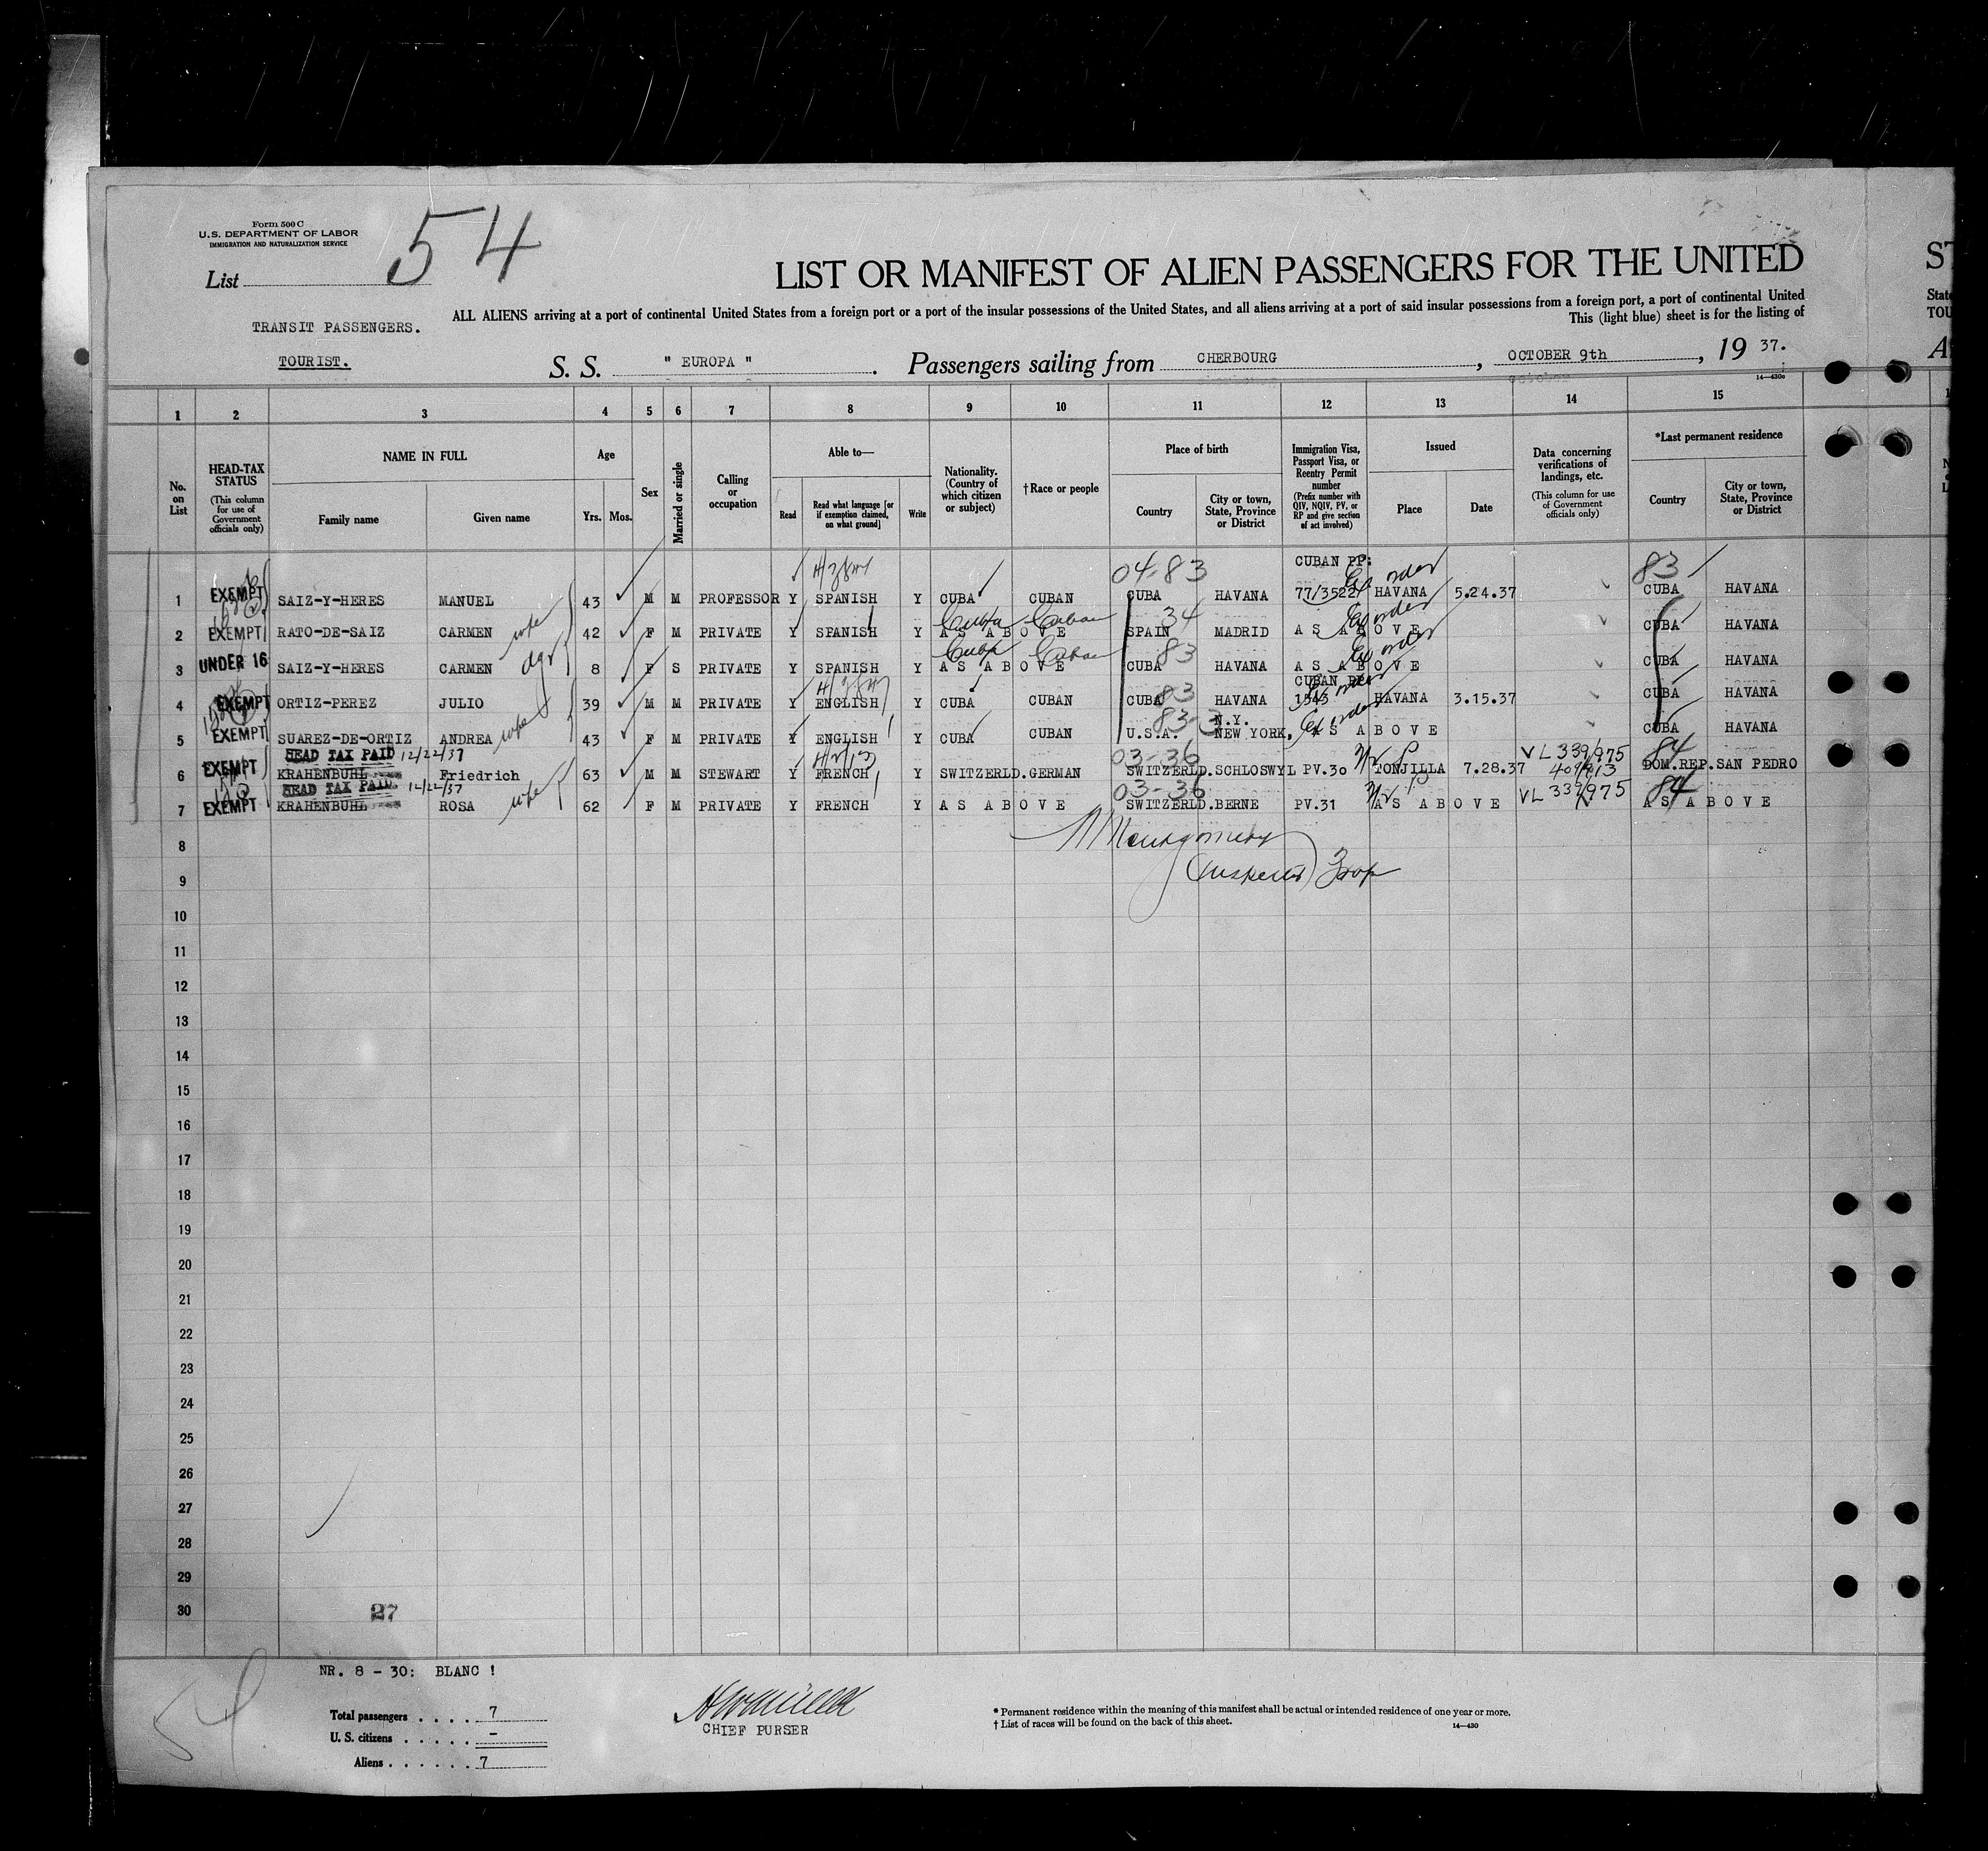 Form 500 C
U.S. DEPARTMENT OF LABOR
IMMIGRATION AND NATURALIZATION SERVICE
List 54
LIST OR MANIFEST OF ALIEN PASSENGERS FOR THE UNITED
ST
ALL ALIENS arriving at a port of continental United States from a foreign port or a port of the insular possessions of the United States, and all aliens arriving at a port of said insular possessions from a foreign port, a port of continental United
This (light blue) sheet is for the listing of
TRANSIT PASSENGERS.
TOURIST.
S. S. " EUROPA ". Passengers sailing from CHERBOURG, OCTOBER 9th, 19 37.
14—430c
1 2 3 4 5 6 7 8 9 10 11 12 13 14 15
No. on List
HEAD-TAX STATUS
(This column for use of Government officials only)
NAME IN FULL
Family name
Given name
Age
Yrs. Mos.
Sex
Married or single
Calling or occupation
Able to—
Read
Read what language [or if exemption claimed, on what ground]
Write
Nationality. (Country of which citizen or subject)
†Race or people
Place of birth
Country
City or town, State, Province or District
Immigration Visa, Passport Visa, or Reentry Permit number
(Prefix number with QIV, NQIV, PV, or RP and give section of act involved)
Issued
Place
Date
Data concerning verifications of landings, etc.
(This column for use of Government officials only)
*Last permanent residence
Country
City or town, State, Province or District
04-83 CUBAN PP: 83
1 EXEMPT SAIZ-Y-HERES MANUEL 43 M M PROFESSOR Y SPANISH Y CUBA CUBAN CUBA HAVANA 77/3522 HAVANA 5.24.37 CUBA HAVANA
wife Cuba Cuban 34
2 EXEMPT RATO-DE-SAIZ CARMEN 42 F M PRIVATE Y SPANISH Y AS ABOVE SPAIN MADRID AS ABOVE CUBA HAVANA
dgr Cuba Cuban 83
3 UNDER 16 SAIZ-Y-HERES CARMEN 8 F S PRIVATE Y SPANISH Y AS ABOVE CUBA HAVANA AS ABOVE CUBA HAVANA
CUBAN PP.
4 EXEMPT ORTIZ-PEREZ JULIO 39 M M PRIVATE Y ENGLISH Y CUBA CUBAN CUBA 83 HAVANA 1543 HAVANA 3.15.37 CUBA HAVANA
wife 83-3 N.Y.
5 EXEMPT SUAREZ-DE-ORTIZ ANDREA 43 F M PRIVATE Y ENGLISH Y CUBA CUBAN U.S.A. NEW YORK, AS ABOVE CUBA HAVANA
HEAD TAX PAID 12/22/37 03-36 VL 339/975 84
6 EXEMPT KRAHENBUHL Friedrich 63 M M STEWART Y FRENCH Y SWITZERLD. GERMAN SWITZERLD. SCHLOSWYL PV.30 TONJILLA 7.28.37 DOM.REP. SAN PEDRO
HEAD TAX PAID 12/22/37 wife 03-36 VL 339/975 84
7 EXEMPT KRAHENBUHL ROSA 62 F M PRIVATE Y FRENCH Y AS ABOVE SWITZERLD. BERNE PV.31 AS ABOVE AS ABOVE
8
Montgomery
9
Inspector
10
11
12
13
14
15
16
17
18
19
20
21
22
23
24
25
26
27
28
29
30
27
NR. 8 - 30: BLANC !
54
Total passengers . . . . 7
U. S. citizens . . . . . –
Aliens . . . . . . 7
CHIEF PURSER
* Permanent residence within the meaning of this manifest shall be actual or intended residence of one year or more.
† List of races will be found on the back of this sheet.
14—430